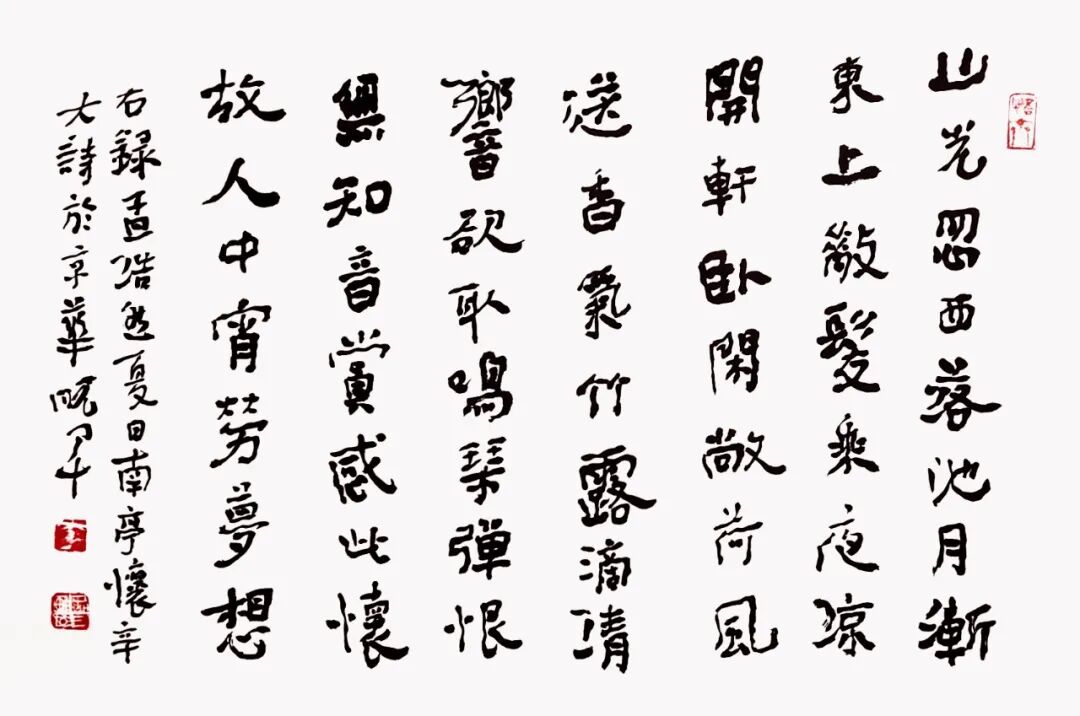 山光忽西落池月漸
東上散髮乘夜凉
開軒卧閑敞荷風
送香氣竹露滴清
響欲取鳴琴彈恨
無知音賞感此懷
故人中宵勞夢想
右録孟浩然夏日南亭懷辛
大詩於京華